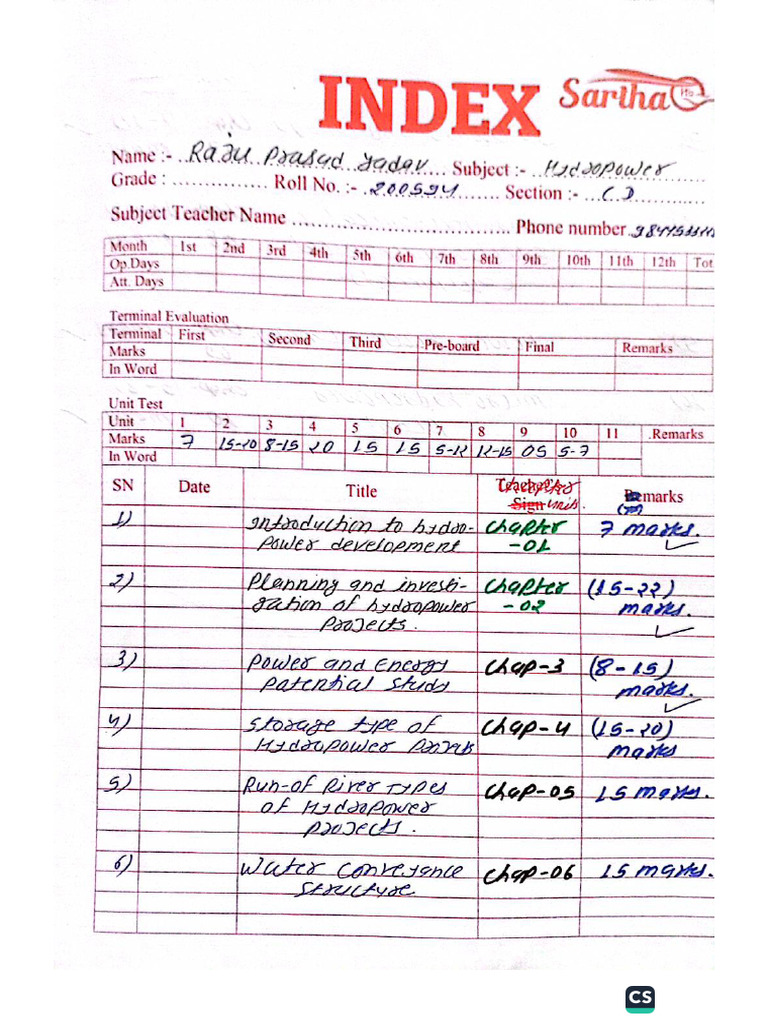 INDEX Sartha
Name :- Raju Prasad Yadav Subject :- Hydropower
Grade : Roll No. :- 200594 Section :- ( )
Subject Teacher Name Phone number
Month 1st 2nd 3rd 4th 5th 6th 7th 8th 9th 10th 11th 12th Tot
Op.Days
Att. Days
Terminal Evaluation
Terminal First Second Third Pre-board Final Remarks
Marks
In Word
Unit Test
Unit 1 2 3 4 5 6 7 8 9 10 11 .Remarks
Marks 7 15-20 8-15 20 15 15 5-12 12-15 05 5-7
In Word
SN Date Title Remarks
1) Introduction to hydro- Chapter 7 marks.
Power development -01
2) Planning and investi- Chapter (15-22)
gation of hydropower -02 marks.
Projects.
3) Power and Energy Chap-3 (8-15)
Patential Study marks.
4) Storage type of Chap-4 (15-20)
Hydropower Projects marks
5) Run-of River Types Chap-05 15 marks.
of Hydropower
Projects.
6) Water Conveyance Chap-06 15 marks.
Structure.
CS